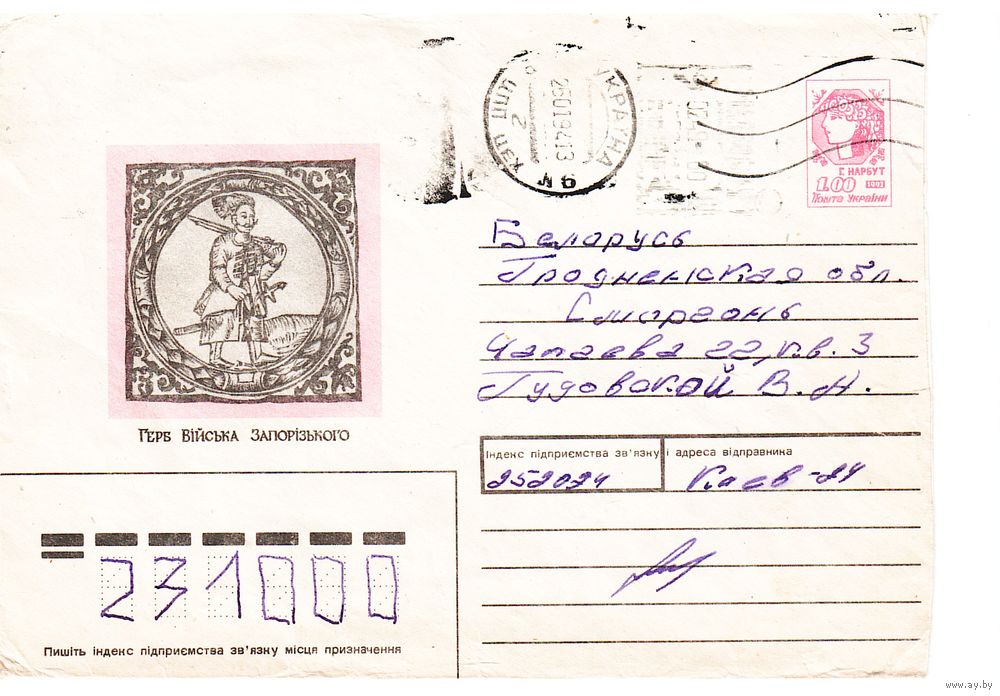 УКРАЇНА
2
260194 13
№6
Г. НАРБУТ
1.00 1992
ПОШТА УКРАЇНИ
Беларусь
Гродненская обл.
Сморгонь
Чапаева 22, кв. 3
Гудовской В. Н.
ГЕРБ ВІЙСЬКА ЗАПОРІЗЬКОГО
Індекс підприємства зв'язку і адреса відправника
252024 Киев-24
231000
Пишіть індекс підприємства зв'язку місця призначення
www.ay.by